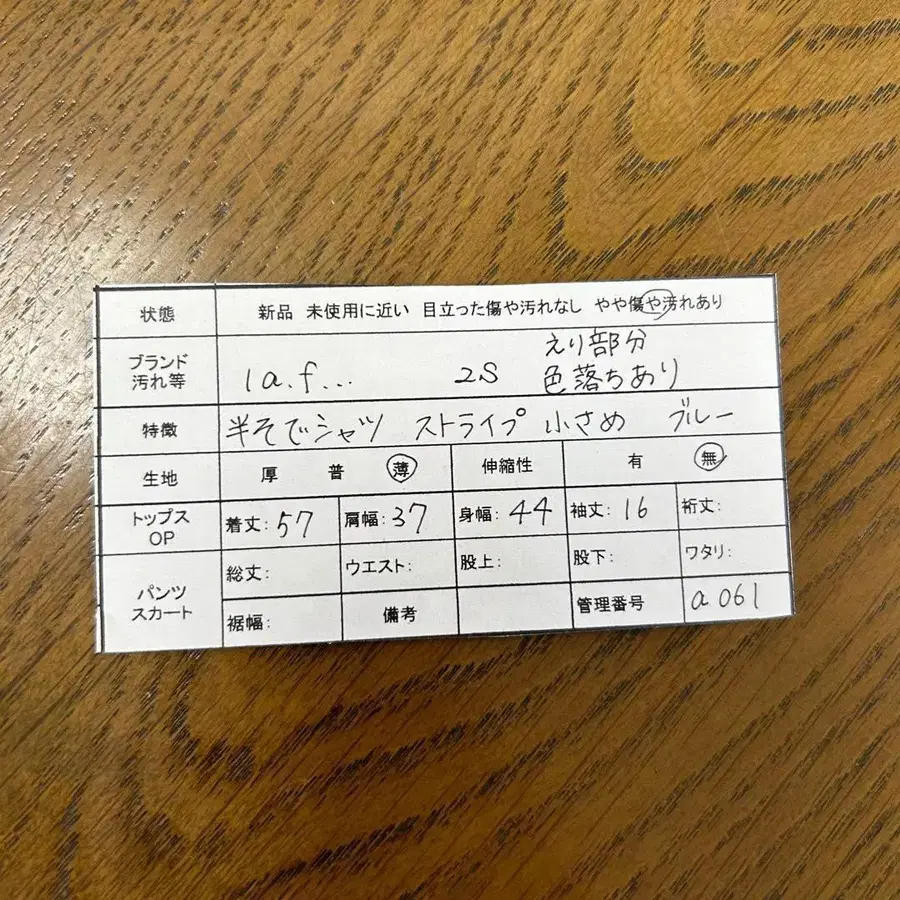 状態 新品 未使用に近い 目立った傷や汚れなし やや傷や汚れあり
ブランド 汚れ等 1a.f... 2S えり部分 色落ちあり
特徴 半そでシャツ ストライプ 小さめ ブルー
生地 厚 普 薄 伸縮性 有 無
トップス OP 着丈: 57 肩幅: 37 身幅: 44 袖丈: 16 裄丈:
パンツ スカート 総丈: ウエスト: 股上: 股下: ワタリ:
裾幅: 備考 管理番号 a061